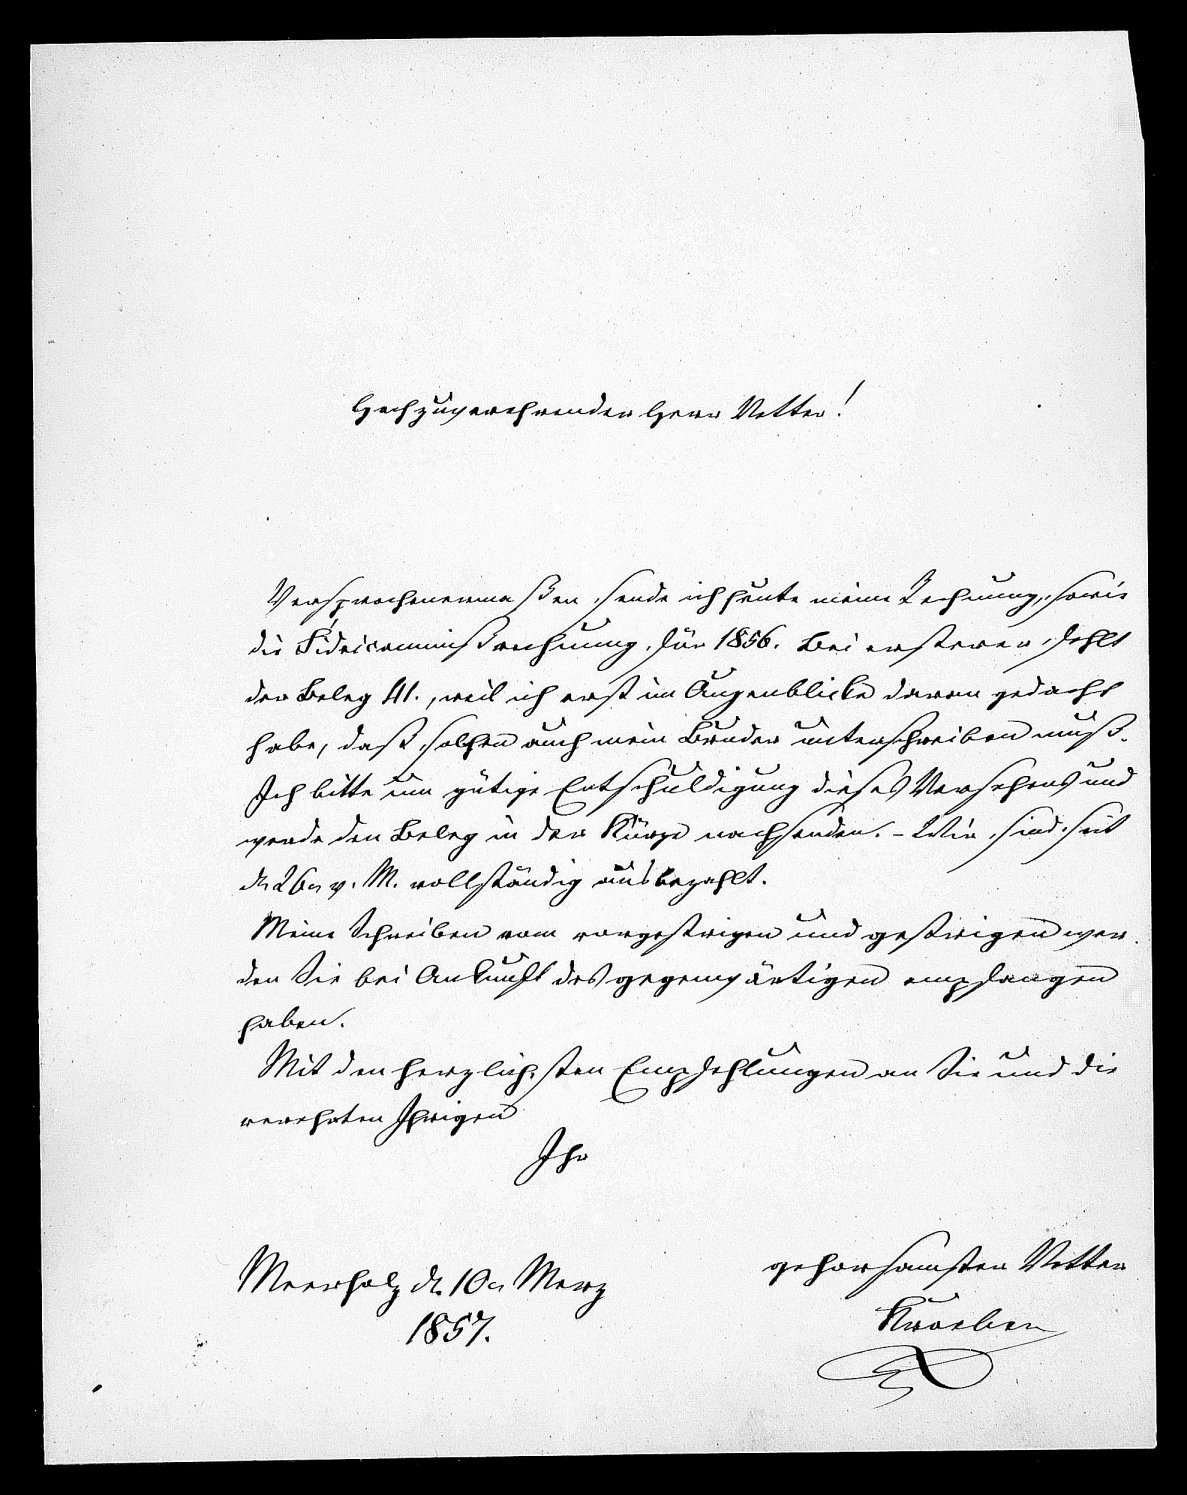 Hochzuverehrender Herr Vetter!
Versprochenermaßen sende ich heute meine Rechnung, sowie
die Fideicommißrechnung für 1856. Bei ersterer fehlt
der Beleg 41., weil ich erst im Augenblicke daran gedacht
habe, daß solchen auch mein Bruder unterschreiben muß.
Ich bitte um gütige Entschuldigung dieses Versehens und
werde den Beleg in der Kürze nachsenden. – Wir sind seit
d. 26n v. M. vollständig ausbezahlt.
Meine Schreiben vom vorgestrigen und gestrigen wer-
den Sie bei Ankunft des gegenwärtigen empfangen
haben.
Mit den herzlichsten Empfehlungen an Sie und die
verehrten Ihrigen
Ihr
gehorsamster Vetter
Meerholz d. 10n Merz
1857.